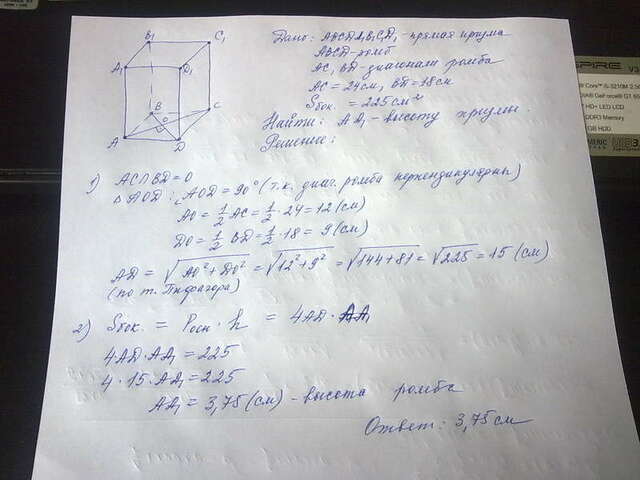 Дано: ABCDA₁B₁C₁D₁ - прямая призма
ABCD - ромб
AC, BD - диагонали ромба
AC = 24см, BD = 18см
Sбок. = 225 см²
Найти: AA₁ - высоту призмы.
Решение:
B₁
C₁
A₁
D₁
B
C
O
A
D
1) AC∩BD = O
△AOD: ∠AOD = 90° (т.к. диаг. ромба перпендикулярны)
AO = 1/2 AC = 1/2 · 24 = 12 (см)
DO = 1/2 BD = 1/2 · 18 = 9 (см)
AD = √(AO² + DO²) = √(12² + 9²) = √(144 + 81) = √225 = 15 (см)
(по т. Пифагора)
2) Sбок. = Pосн · h = 4AD · AA₁
4AD · AA₁ = 225
4 · 15 · AA₁ = 225
AA₁ = 3,75 (см) - высота ромба
Ответ: 3,75 см
SPIRE V3
Core™ i5-3210M 2.5
GeForce® GT 6
HD+ LED LCD
DDR3 Memory
GB HDD